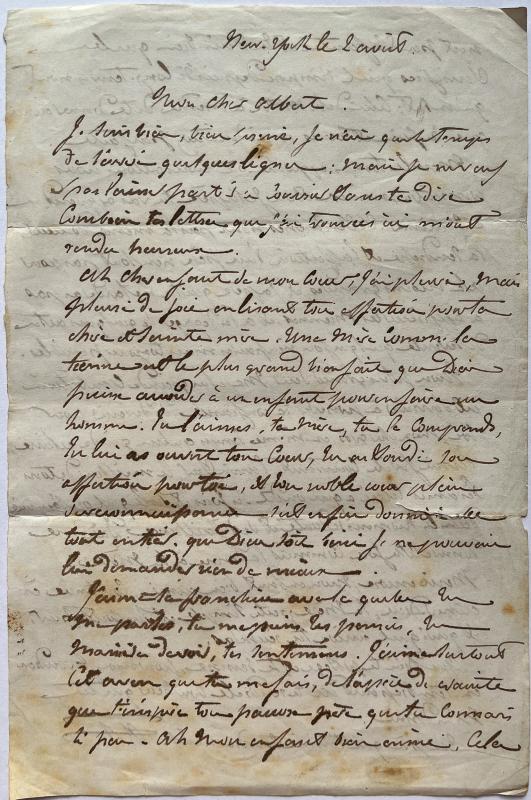 New-York le 2 août.
Mon cher Albert.
Je suis bien, bien pressé, je n'ai que le temps
de t'écrire quelques lignes; mais je ne veux
pas laisser partir sans te dire
Combien tes lettres que j'ai trouvées ici m'ont
rendu heureux.
Ah cher enfant de mon cœur, j'ai pleuré, mais
pleuré de joie en lisant ton affection pour ta
chère et sainte mère. Une Mère comme la
tienne est le plus grand bienfait que Dieu
puisse accorder à un enfant pour en faire un
homme. Tu l'aimes, ta Mère, tu la comprends,
tu lui as ouvert ton cœur, tu as sondé son
affection pour toi, et ton noble cœur plein
de reconnaissance s'est enfin donné
tout entier, que Dieu soit béni je ne pouvais
lui demander rien de mieux.
J'aime la franchise avec laquelle tu
me parles, tu me peins tes pensées, ta
manière de voir, tes sentiments. J'aime surtout
cet aveu que tu me fais, de l'espèce de crainte
que t'inspire ton pauvre père que tu connais
si peu. Ah mon enfant bien aimé, cela